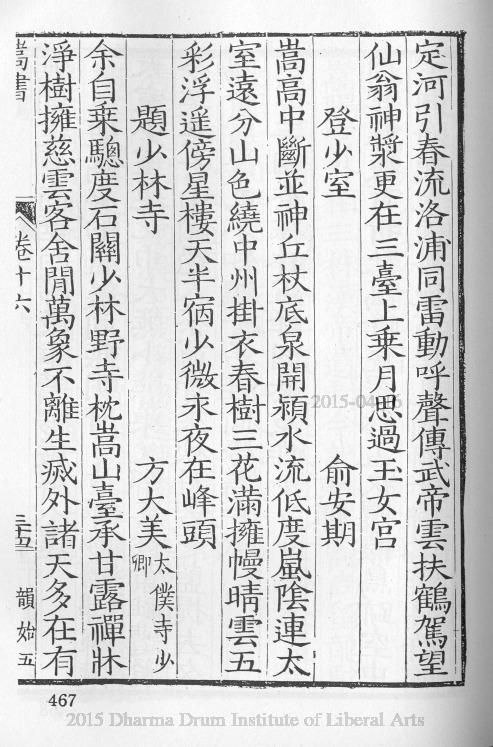 定河引春流洛浦同雷動呼聲傳武帝雲扶鶴駕望
仙翁神漿更在三臺上乘月思過玉女宮
登少室 俞安期
嵩高中斷並神丘杖底泉開潁水流低度嵐陰連太
室遠分山色繞中州掛衣春樹三花滿擁幔晴雲五
彩浮遥傍星樓天半宿少微永夜在峰頭
題少林寺 方大美太僕寺少卿
余自乘驄度石關少林野寺枕嵩山臺承甘露禪牀
淨樹擁慈雲客舍閒萬象不離生滅外諸天多在有
嵩書 卷十六 三五 韻始五
2015-04
467
2015 Dharma Drum Institute of Liberal Arts